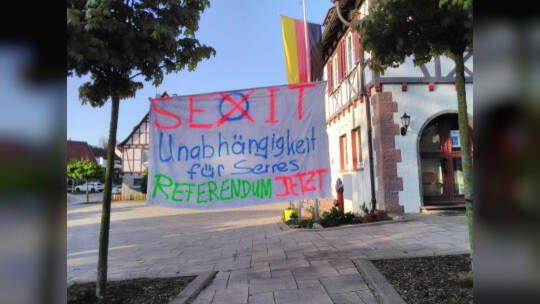 SEXIT
Unabhängigkeit
für Serres
REFERENDUM JETZT